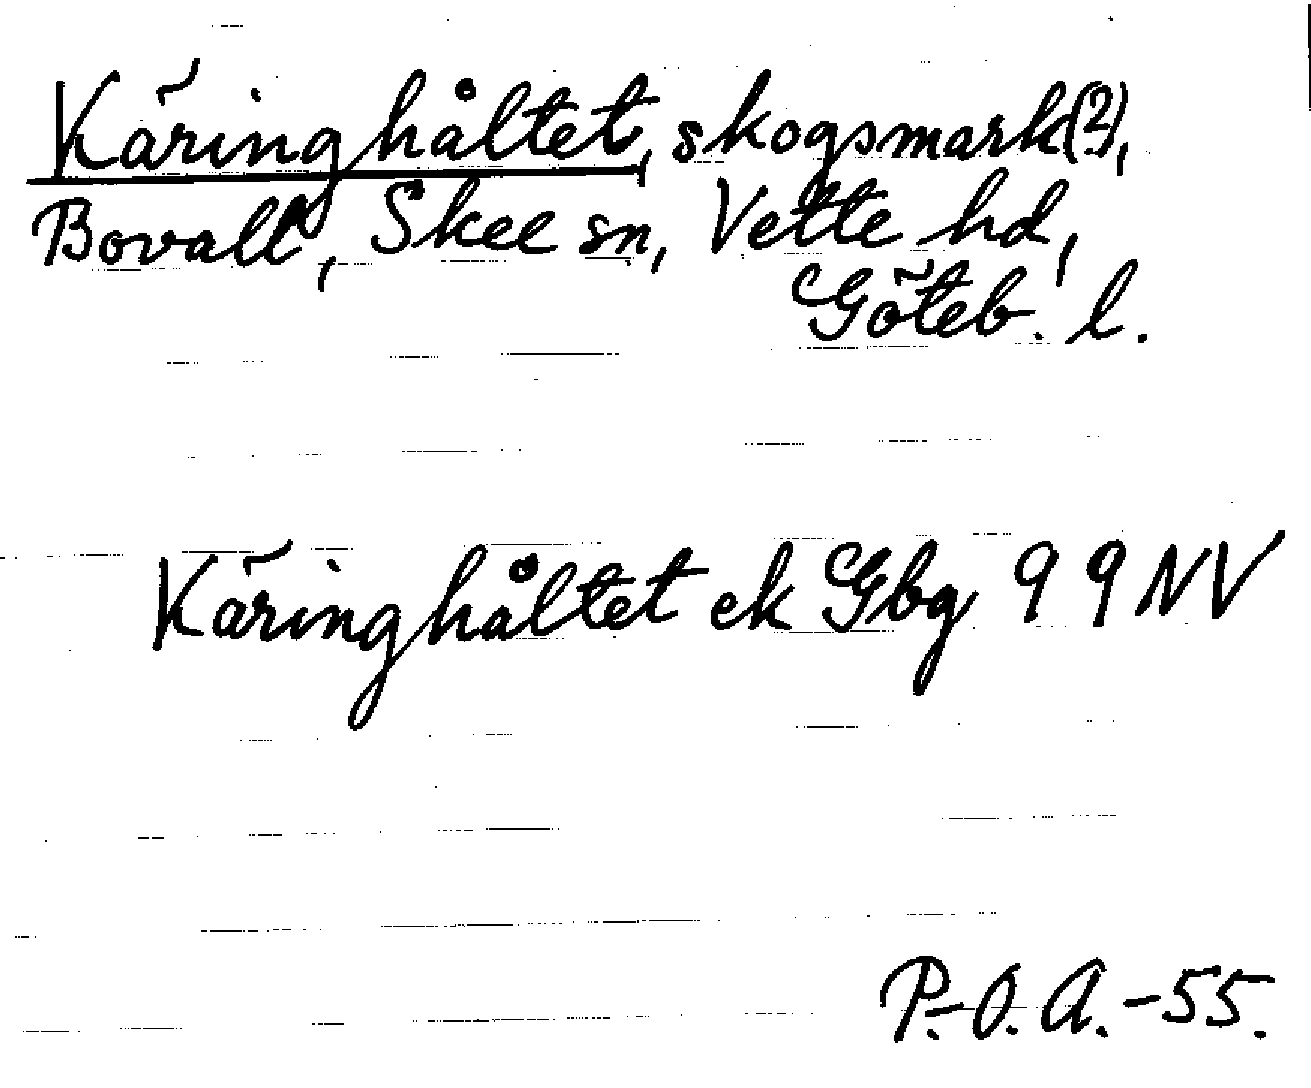 Käringhåltet, skogsmark(?),
Bovall, Skee sn, Vette hd,
Göteb. l.
Käringhåltet ek Gbg 9 9 NV
P.-O. A. -55.